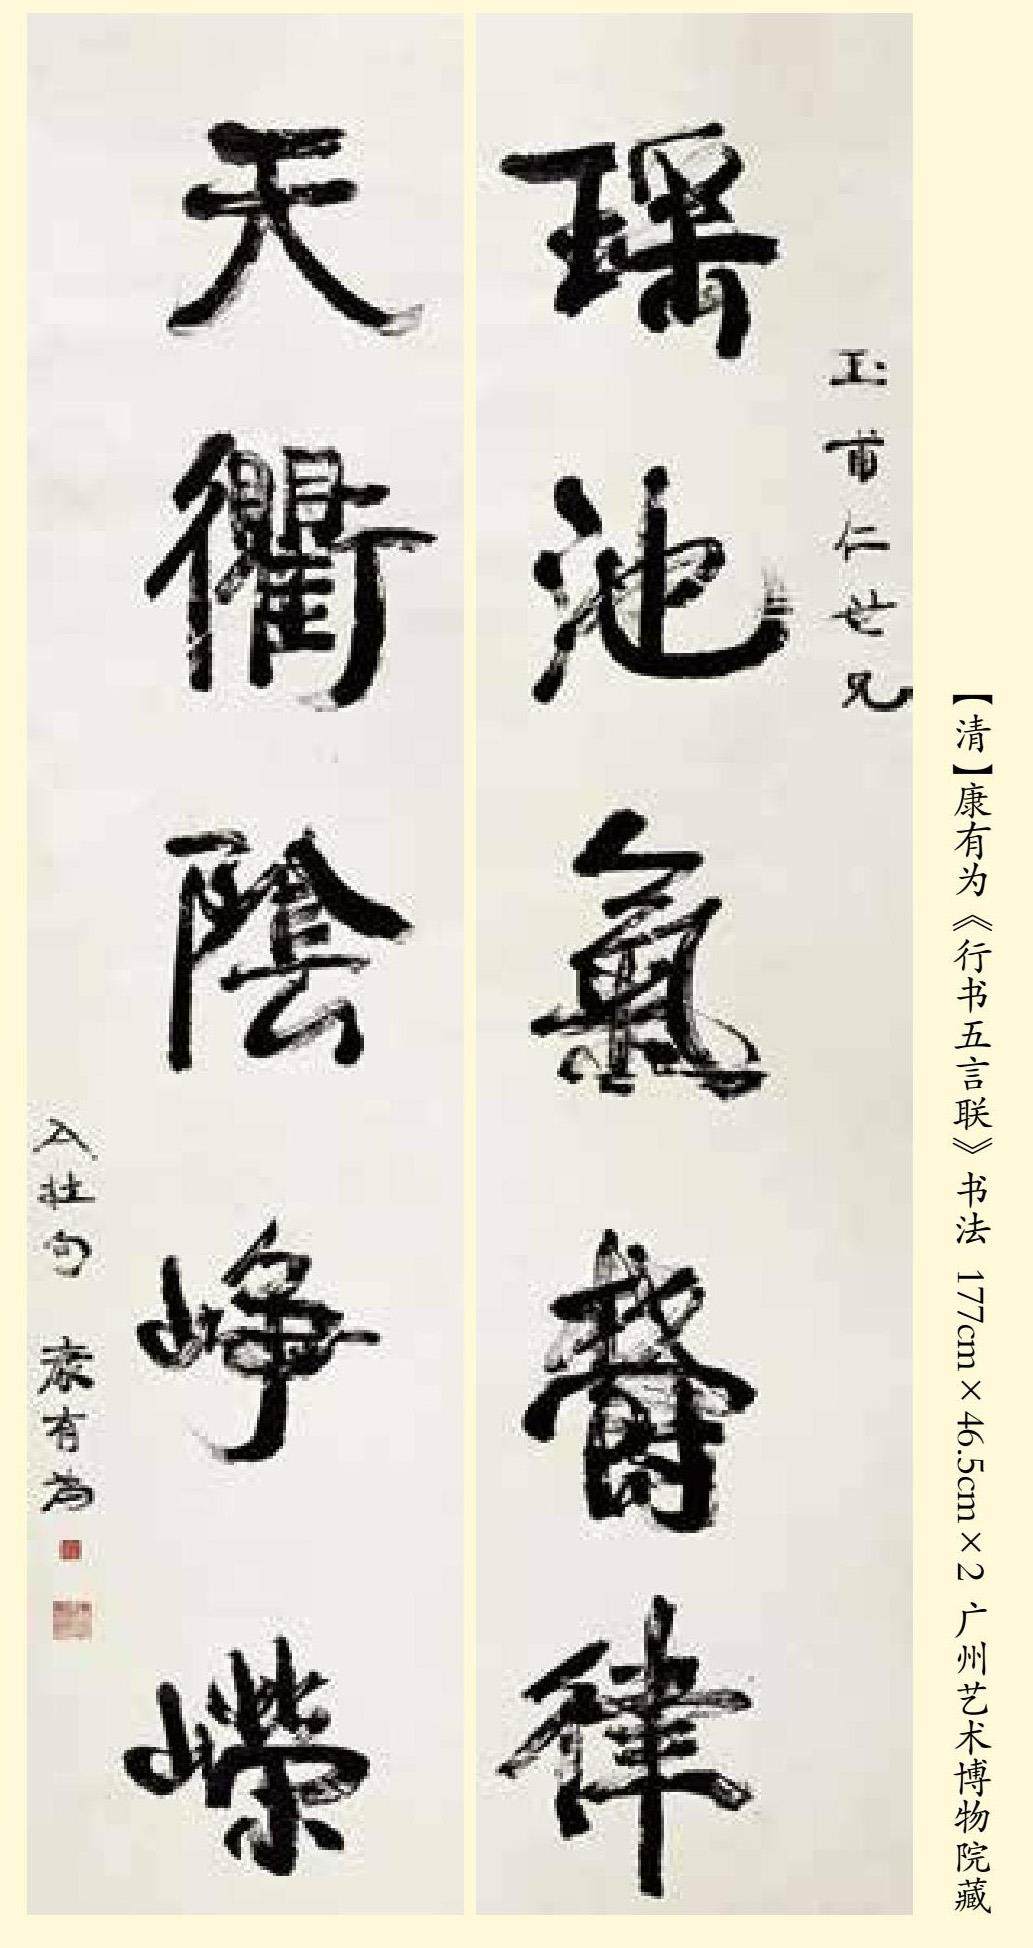 【清】康有为《行书五言联》书法 177cm×46.5cm×2 广州艺术博物院藏
玉甫仁世兄
瑤池氣鬱律
天衢陰崢嶸
入杜句 康有為